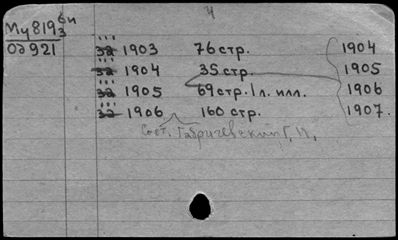 4
Му819 6и
3
Од921
за 1903 76 стр. 1904
за 1904 35 стр. 1905
за 1905 69 стр. 1 л. илл. 1906
за 1906 160 стр. 1907.
Сост. Габричевский Г. Н.